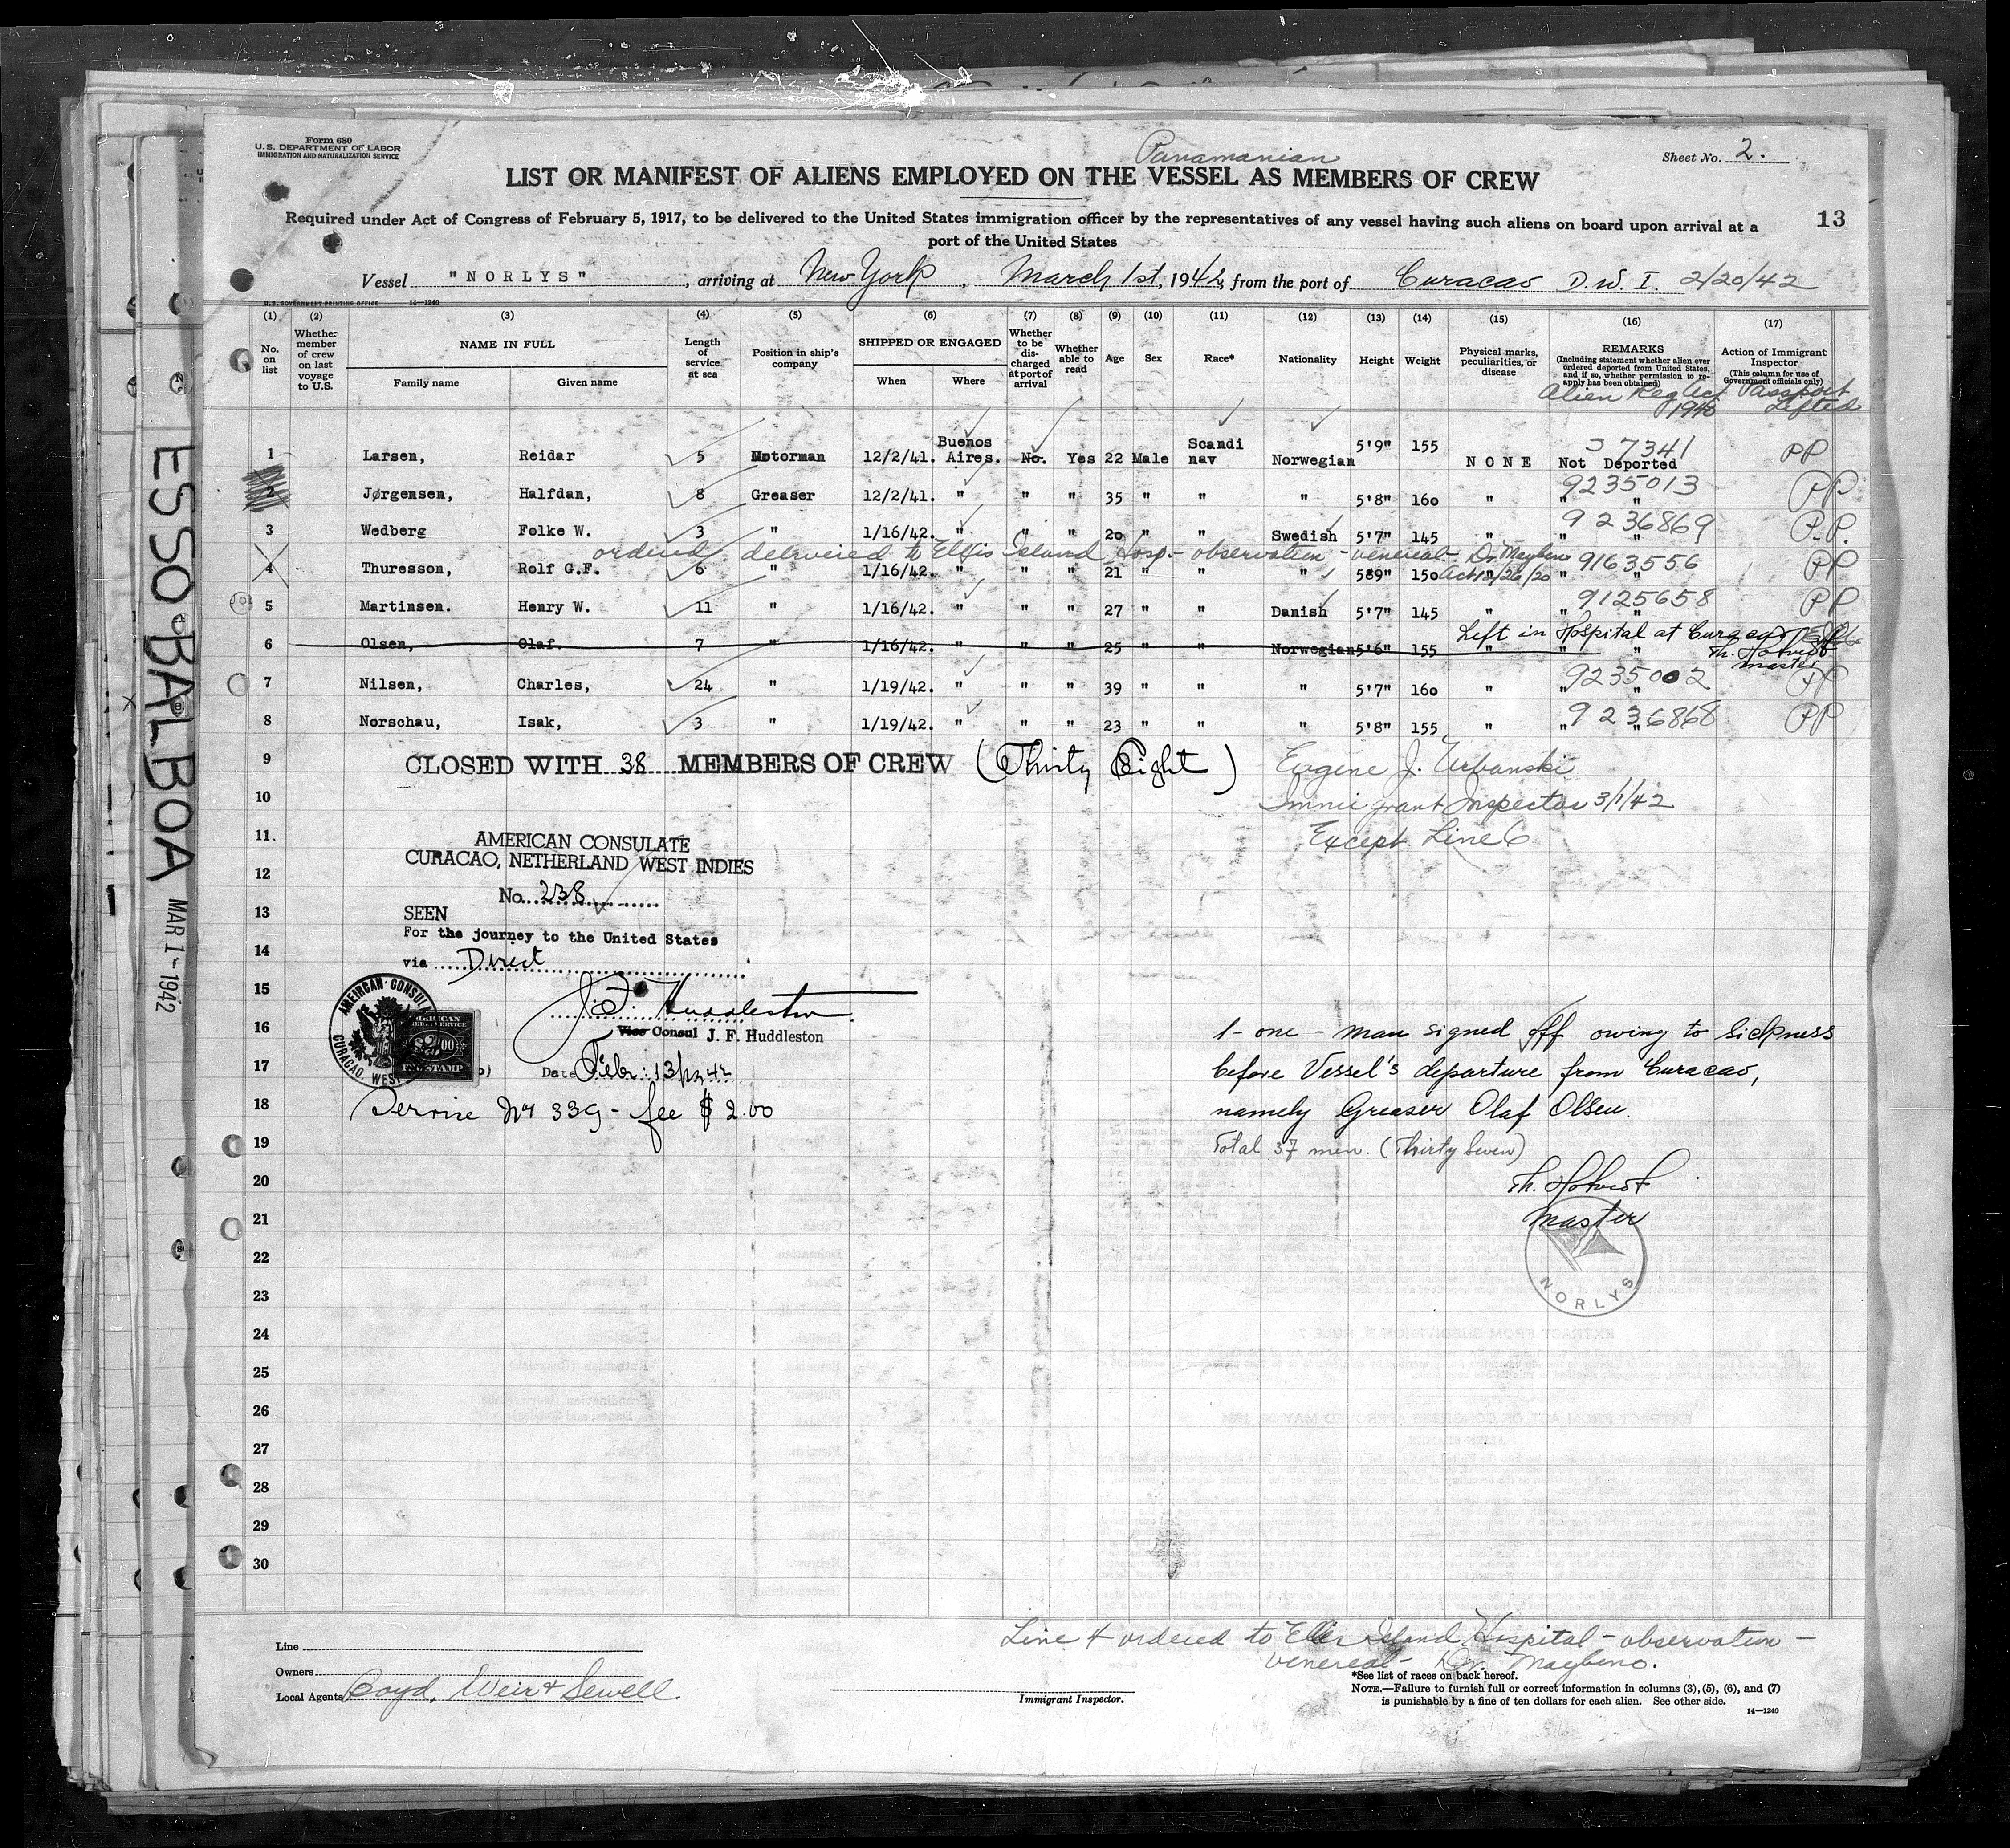 Form 680
U.S. DEPARTMENT OF LABOR
IMMIGRATION AND NATURALIZATION SERVICE
Panamanian
Sheet No. 2.
LIST OR MANIFEST OF ALIENS EMPLOYED ON THE VESSEL AS MEMBERS OF CREW
Required under Act of Congress of February 5, 1917, to be delivered to the United States immigration officer by the representatives of any vessel having such aliens on board upon arrival at a
port of the United States
13
Vessel "NORLYS", arriving at New York, March 1st, 1942, from the port of Curacao D.W.I. 2/20/42
U.S. GOVERNMENT PRINTING OFFICE 14—1240
(1) (2) (3) (4) (5) (6) (7) (8) (9) (10) (11) (12) (13) (14) (15) (16) (17)
No. on list
Whether member of crew on last voyage to U.S.
NAME IN FULL
Family name
Given name
Length of service at sea
Position in ship's company
SHIPPED OR ENGAGED
When
Where
Whether to be discharged at port of arrival
Whether able to read
Age
Sex
Race*
Nationality
Height
Weight
Physical marks, peculiarities, or disease
REMARKS
(Including statement whether alien ever ordered deported from United States, and if so, whether permission to reapply has been obtained)
Action of Immigrant Inspector
(This column for use of Government officials only)
Alien Reg Act 1940
Passport Lifted
1 Larsen, Reidar 5 Motorman 12/2/41. Buenos Aires. No. Yes 22 Male Scandi nav Norwegian 5'9" 155 NONE 7341 Not Deported PP
2 Jørgensen, Halfdan, 8 Greaser 12/2/41. " " " 35 " " " 5'8" 160 " 9235013 " " PP
3 Wedberg Folke W. 3 " 1/16/42. " " " 20 " " Swedish 5'7" 145 " 9236869 " " P.P.
ordered delivered to Ellis Island Hosp. - observation - venereal - Dr Maybeno
4 Thuresson, Rolf G.F. 6 " 1/16/42. " " " 21 " " " 589" 150 " 9163556 " " PP
5 Martinsen. Henry W. 11 " 1/16/42. " " " 27 " " Danish 5'7" 145 " 9125658 " " PP
Left in Hospital at Curacao
6 Olsen, Olaf. 7 " 1/16/42. " " " 25 " " Norwegian 5'6" 155 " " " Th. Hotvedt master
7 Nilsen, Charles, 24 " 1/19/42. " " " 39 " " " 5'7" 160 " 9235002 " " PP
8 Norschau, Isak, 3 " 1/19/42. " " " 23 " " " 5'8" 155 " 9236868 " " PP
9 CLOSED WITH 38 MEMBERS OF CREW (Thirty Eight) Eugene J. Urbanski
10 Immigrant Inspector 3/1/42
11 Except Line 6
AMERICAN CONSULATE
CURACAO, NETHERLAND WEST INDIES
12
No. 238
13 SEEN
For the journey to the United States
14 via Direct
15 J.F. Huddleston
16 Vice Consul J. F. Huddleston
AMERICAN CONSULA
CURACAO, WES
AMERICAN
$2.00
FEE STAMP
17 Date Febr. 13/1942
18 Service No 339 - fee $ 2.00
1 - one - man signed off owing to sickness
before Vessel's departure from Curacao,
namely Greaser Olaf Olsen.
19 Total 37 men. (Thirty Seven)
20 Th. Hotvedt
21 master
22
NORLYS
23
24
25
26
27
28
29
30
Line
Owners
Local Agents Boyd, Weir & Sewell
Immigrant Inspector.
Line 4 ordered to Ellis Island Hospital - observation -
venereal - Dr. Maybeno.
*See list of races on back hereof.
NOTE.—Failure to furnish full or correct information in columns (3), (5), (6), and (7)
is punishable by a fine of ten dollars for each alien. See other side.
14—1240
ESSO BALBOA MAR 1-1942